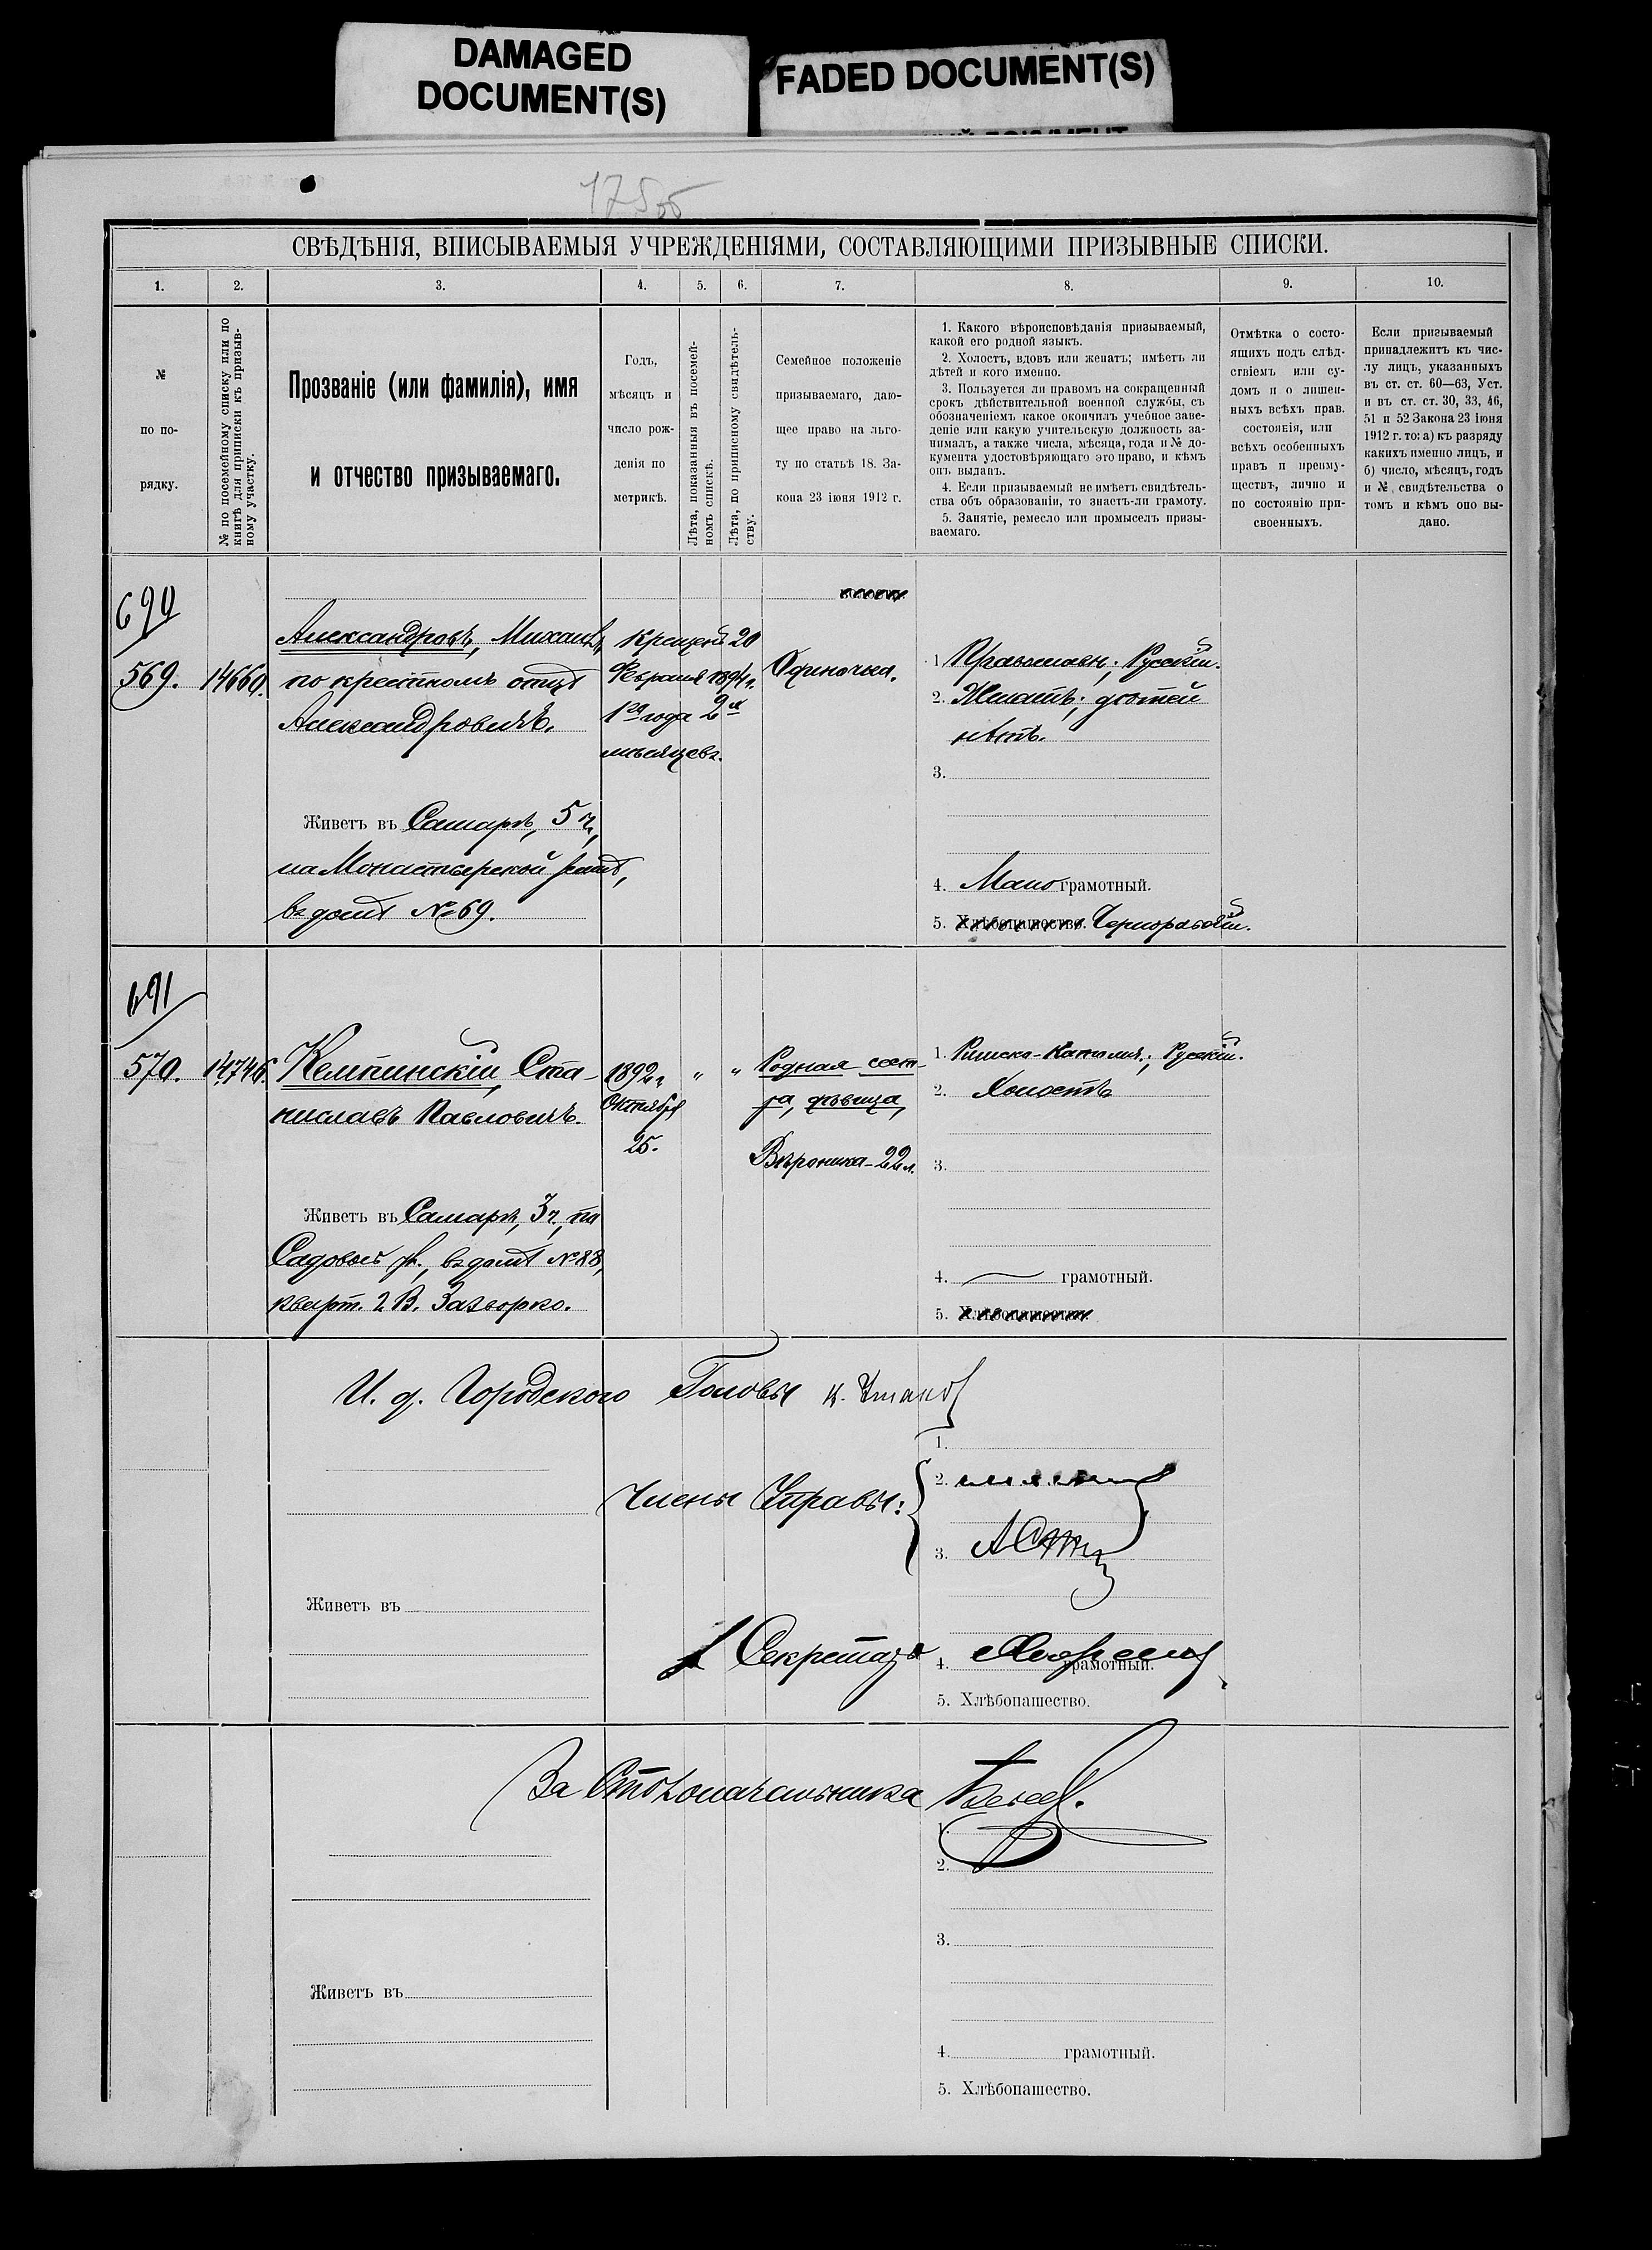 DAMAGED
DOCUMENT(S)
FADED DOCUMENT(S)
175об
СВѢДѢНІЯ, ВПИСЫВАЕМЫЯ УЧРЕЖДЕНІЯМИ, СОСТАВЛЯЮЩИМИ ПРИЗЫВНЫЕ СПИСКИ.
1.
2.
3.
4.
5.
6.
7.
8.
9.
10.
№
по по-
рядку.
№ по посемейному списку или по
книгѣ для приписки къ призыв-
ному участку.
Прозваніе (или фамилія), имя
и отчество призываемаго.
Годъ,
мѣсяцъ и
число рож-
денія по
метрикѣ.
Лѣта, показанныя въ посемей-
номъ спискѣ.
Лѣта, по приписному свидѣтель-
ству.
Семейное положеніе
призываемаго, даю-
щее право на льго-
ту по статьѣ 18. За-
кона 23 іюня 1912 г.
1. Какого вѣроисповѣданія призываемый,
какой его родной языкъ.
2. Холостъ, вдовъ или женатъ; имѣетъ ли
дѣтей и кого именно.
3. Пользуется ли правомъ на сокращенный
срокъ дѣйствительной военной службы, съ
обозначеніемъ какое окончилъ учебное заве-
деніе или какую учительскую должность за-
нималъ, а также числа, мѣсяца, года и № до-
кумента удостовѣряющаго это право, и кѣмъ
онъ выданъ.
4. Если призываемый не имѣетъ свидѣтель-
ства объ образованіи, то знаетъ-ли грамоту.
5. Занятіе, ремесло или промыселъ призы-
ваемаго.
Отмѣтка о состо-
ящихъ подъ слѣд-
ствіемъ или су-
домъ и о лишен-
ныхъ всѣхъ прав.
состоянія, или
всѣхъ особенныхъ
правъ и преиму-
ществъ, лично и
по состоянію при-
своенныхъ.
Если призываемый
принадлежитъ къ чис-
лу лицъ, указанныхъ
въ ст. ст. 60—63, Уст.
и въ ст. ст. 30, 33, 46,
51 и 52 Закона 23 іюня
1912 г. то: а) къ разряду
какихъ именно лицъ, и
б) число, мѣсяцъ, годъ
и № свидѣтельства о
томъ и кѣмъ оно вы-
дано.
690
569.
14669.
Александровъ, Михаилъ,
по крестномъ отцѣ
Александровичъ.
Живетъ въ Самарѣ, 5 ч.,
на Монастырской улицѣ,
въ домѣ № 69.
Крещенъ 20
Февраля 1894 г.
1го года 2х
мѣсяцевъ.
Одиночка.
1. Православн.; Русскій.
2. Женатъ; дѣтей
нѣтъ.
3.
4. Мало грамотный.
5. Хлѣбопашество. Чернорабочій.
691
570.
14746.
Кемпинскій, Ста-
ниславъ Павловичъ.
Живетъ въ Самарѣ, 3 ч., на
Садовой ул., въ домѣ № 88,
кварт. 2 В. Заворко.
1892 г.
Октября
25.
"
"
Родная сест-
ра, дѣвица,
Вѣроника - 22 л.
1. Римско-Католич.; Русскій.
2. Холостъ
3.
4. грамотный.
5. Хлѣбопашество.
И. д. Городского Головы
Члены Управы:
1.
2.
3.
Живетъ въ
Секретарь
4. грамотный.
5. Хлѣбопашество.
За Столоначальника
1.
2.
3.
Живетъ въ
4. грамотный.
5. Хлѣбопашество.